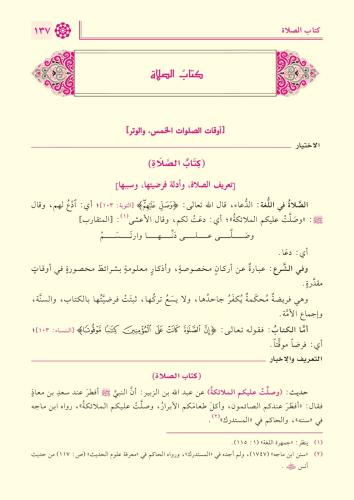 كتاب الصلاة
١٣٧
كتاب الصلاة
[أوقات الصلوات الخمس، والوتر]
الاختيار
(كِتَابُ الصَّلَاةِ)
[تعريف الصلاة، وأدلة فرضيتها، وسببها]
الصَّلَاةُ في اللُّغة: الدُّعاء، قال الله تعالى: ﴿وَصَلِّ عَلَيْهِمْ﴾ [التوبة: ١٠٣]؛ أي: ادْعُ لهم، وقال
ﷺ: «وصَلَّتْ عليكم الملائكةُ»؛ أي: دعَتْ لكم، وقال الأعشى(١): [المتقارب]
وصَلَّى على دَنِّها وارتَسَمْ
أي: دعَا.
وفي الشَّرع: عبارةٌ عن أركانٍ مخصوصةٍ، وأذكارٍ معلومةٍ بشرائطَ محصورةٍ في أوقاتٍ
مقدَّرةٍ.
وهي فريضةٌ مُحكَمةٌ يُكفَرُ جاحدُها، ولا يسَعُ تركُها، ثبتَتْ فرضيَّتُها بالكتاب، والسنَّة،
وإجماع الأمَّة.
أمَّا الكتابُ: فقوله تعالى: ﴿إِنَّ الصَّلَوٰةَ كَانَتْ عَلَى الْمُؤْمِنِينَ كِتَٰبًا مَّوْقُوتًا﴾ [النساء: ١٠٣]؛
أي: فرضاً موقَّتاً.
التعريف والإخبار
(كتاب الصلاة)
حديث: (وصلَّتْ عليكم الملائكةُ) عن عبد الله بن الزبير: أنَّ النبيَّ ﷺ أفطَرَ عند سعدِ بن معاذٍ
فقال: «أفطَرَ عندكم الصائمون، وأكلَ طعامَكم الأبرارُ، وصلَّتْ عليكم الملائكةُ»، رواه ابن ماجه
في «سننه»، والحاكم في «المستدرك»(٢).
(١) ينظر: «جمهرة اللغة» (١: ١١٥).
(٢) «سنن ابن ماجه» (١٧٤٧)، ولم أجده في «المستدرك»، ورواه الحاكم في «معرفة علوم الحديث» (ص: ١١٧) من حديث
أنس